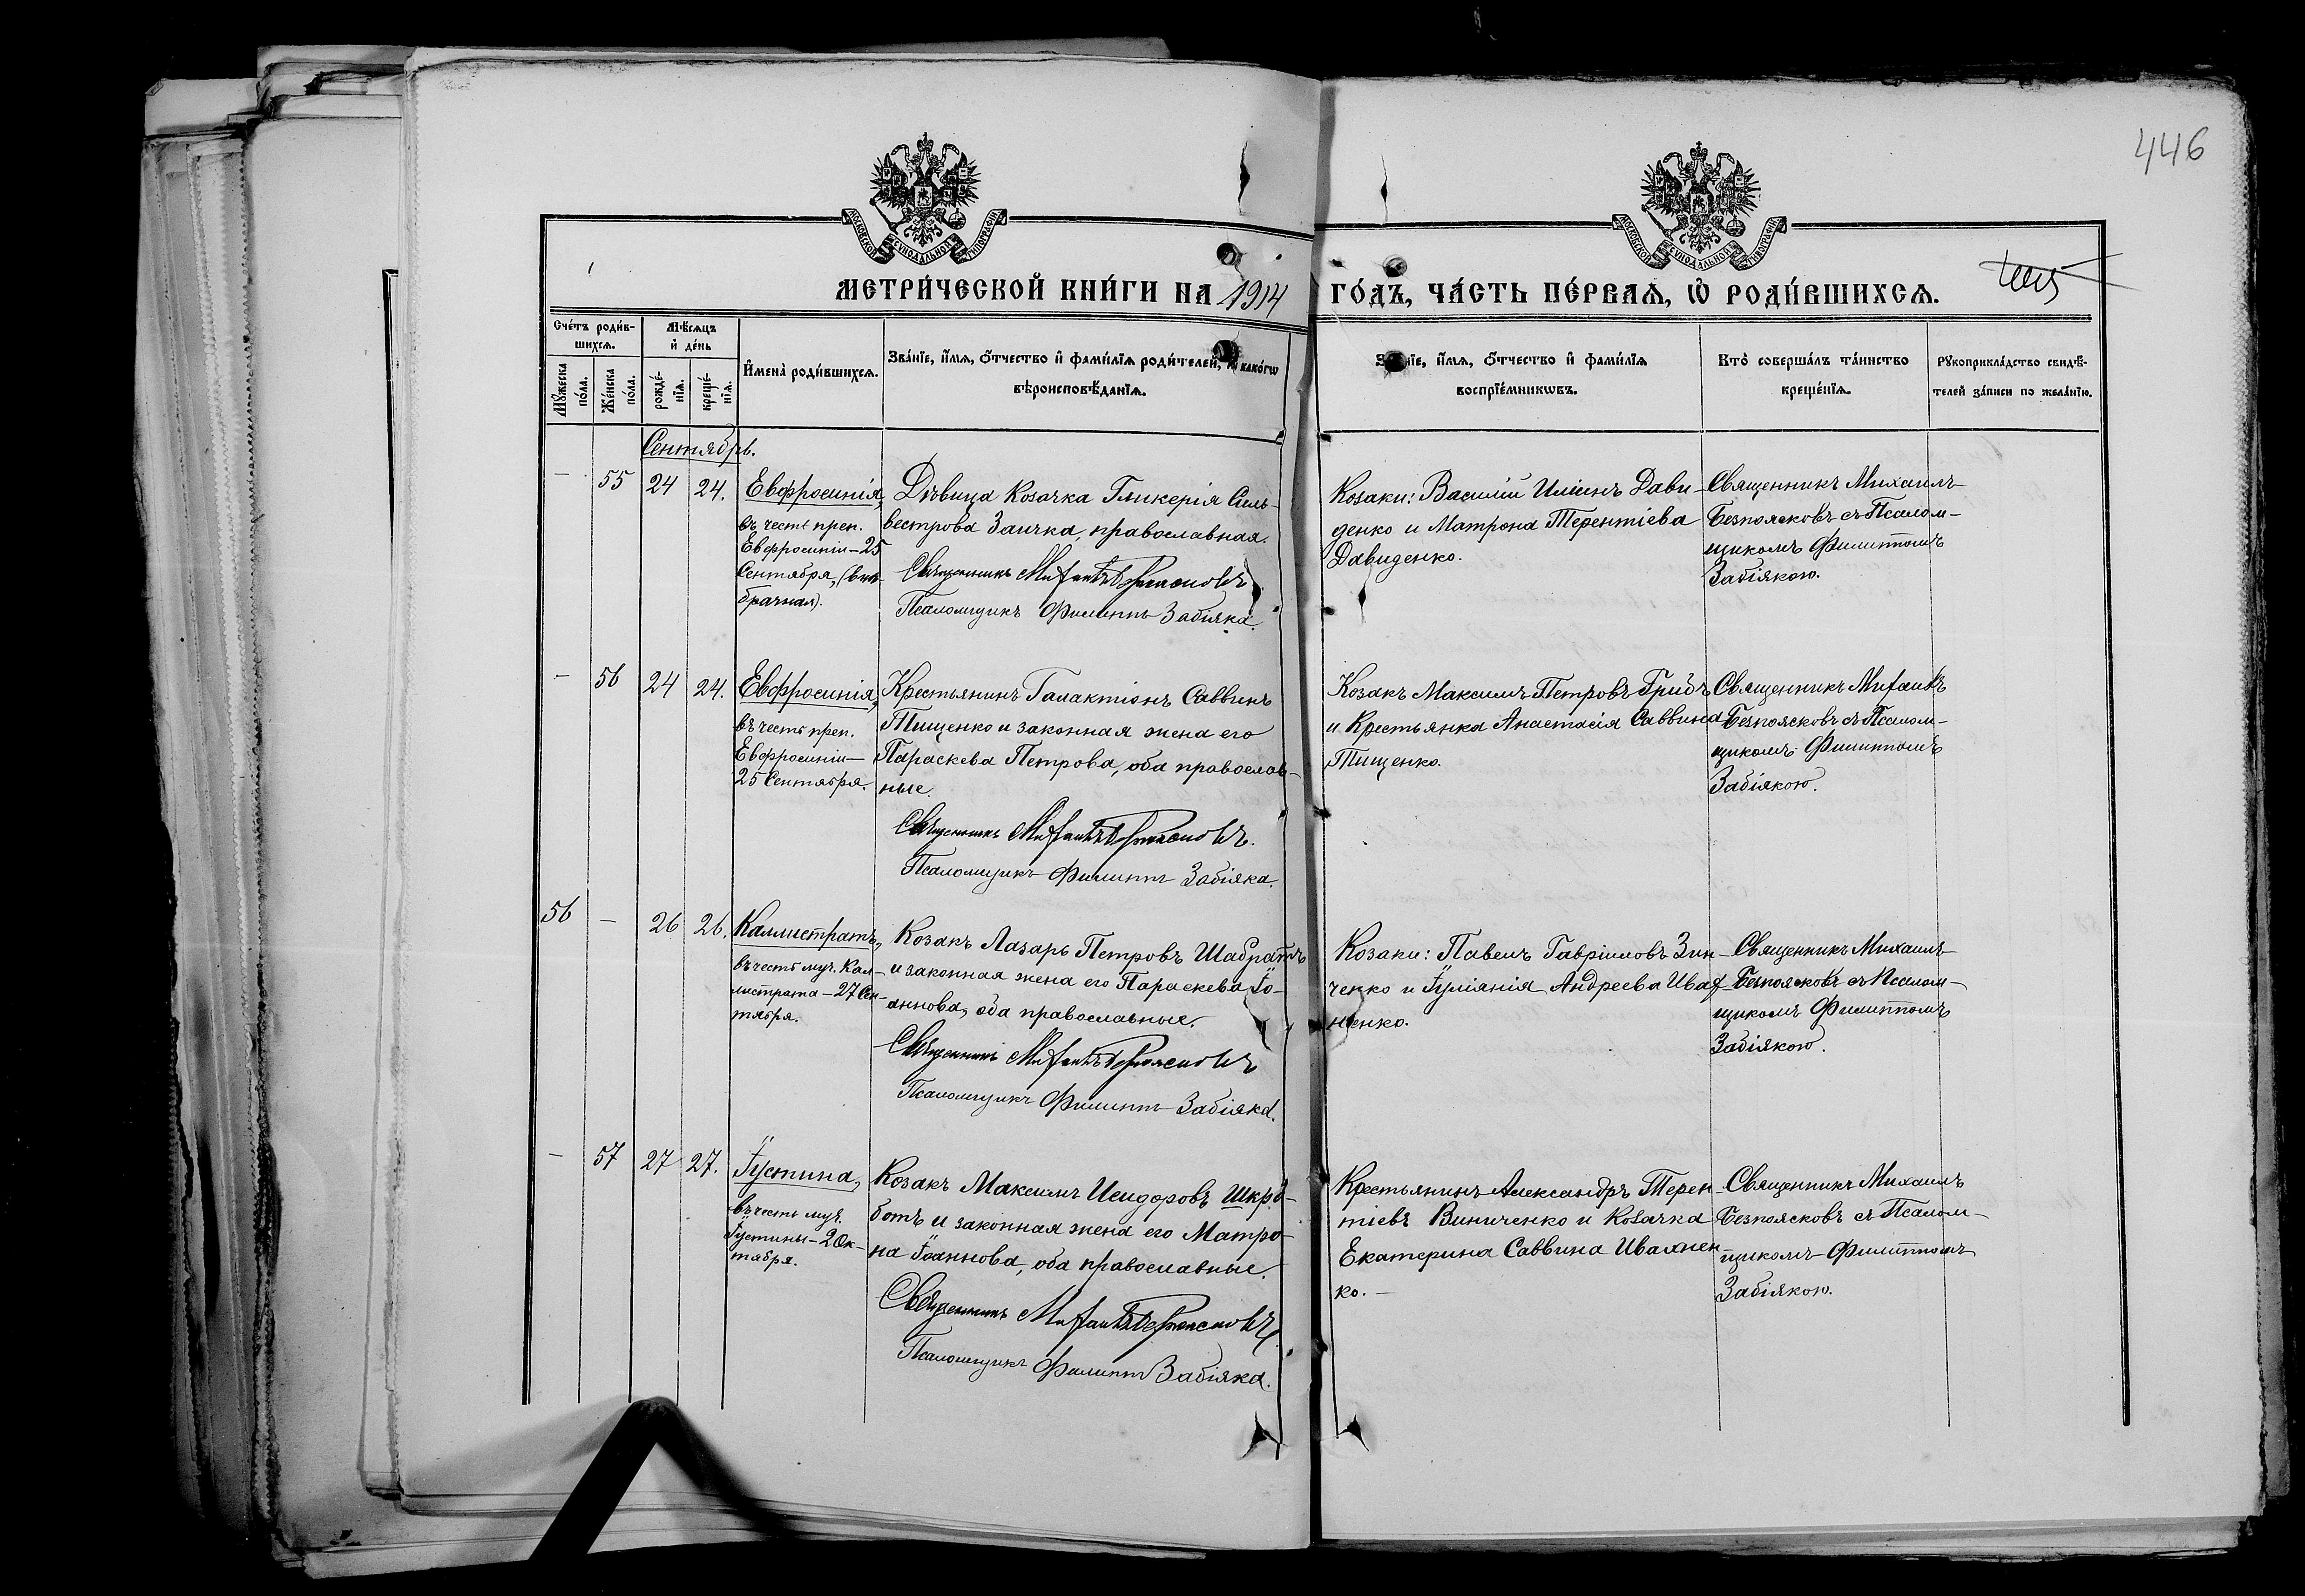 446
МОСКОВСКОЙ СѴНОДАЛЬНОЙ ТИПОГРАФІИ
МОСКОВСКОЙ СѴНОДАЛЬНОЙ ТИПОГРАФІИ
МЕТРИ́ЧЕСКОЙ КНИ́ГИ НА 1914 ГО́ДЪ, ЧА́СТЬ ПЕ́РВАѦ, Ѡ҆ РОДИ́ВШИХСѦ.
Сче́тъ роди́в-
шихсѧ.
Мꙋ́жеска
по́ла.
Же́нска
по́ла.
Мѣ́сѧцъ
и҆ де́нь
рожде́-
нїѧ.
креще́-
нїѧ.
И҆мена̀ роди́вшихсѧ.
Зва́нїе, и҆́мѧ, ѻ҆́тчество и҆ фами́лїѧ роди́телей, и҆ како́гѡ
вѣроисповѣ́данїѧ.
Зва́нїе, и҆́мѧ, ѻ҆́тчество и҆ фами́лїѧ
воспрїе́мникѡвъ.
Кто̀ соверша́лъ та́инство
креще́нїѧ.
Рꙋкоприкла́дство свидѣ́-
телей за́писи по жела́нїю.
Сентябрь.
— 55 24 24.
Евфросинія,
въ честь преп.
Евфросиніи — 25
Сентября, (внѣ-
брачная).
Дѣвица Козачка Гликерія Силь-
вестрова Заичка, православная.
Священникъ Михаилъ Безпоясковъ
Псаломщикъ Филиппъ Забіяка.
Козаки: Василій Иліинъ Дави-
денко и Матрона Терентіева
Давиденко.
Священникъ Михаилъ
Безпоясковъ съ Псалом-
щикомъ Филиппомъ
Забіякою.
— 56 24 24.
Евфросинія,
въ честь преп.
Евфросиніи —
25 Сентября.
Крестьянинъ Галактіонъ Саввинъ
Тищенко и законная жена его
Параскева Петрова, оба православ-
ные.
Священникъ Михаилъ Безпоясковъ.
Псаломщикъ Филиппъ Забіяка.
Козакъ Максимъ Петровъ Гридъ
и Крестьянка Анастасія Саввина
Тищенко.
Священникъ Михаилъ
Безпоясковъ съ Псалом-
щикомъ Филиппомъ
Забіякою.
56 — 26 26.
Каллистратъ,
въ честь муч. Кал-
листрата — 27 Сен-
тября.
Козакъ Лазарь Петровъ Шабратъ
и законная жена его Параскева Іо-
аннова, оба православные.
Священникъ Михаилъ Безпоясковъ
Псаломщикъ Филиппъ Забіяка.
Козаки: Павелъ Гавріиловъ Зин-
ченко и Іуліанія Андреева Ивах-
ненко.
Священникъ Михаилъ
Безпоясковъ съ Псалом-
щикомъ Филиппомъ
Забіякою.
— 57 27 27.
Іустина,
въ честь муч.
Іустины — 2 Ок-
тября.
Козакъ Максимъ Исидоровъ Шкро-
ботъ и законная жена его Матро-
на Іоаннова, оба православные.
Священникъ Михаилъ Безпоясковъ
Псаломщикъ Филиппъ Забіяка.
Крестьянинъ Александръ Терен-
тіевъ Виниченко и Козачка
Екатерина Саввина Ивахнен-
ко. —
Священникъ Михаилъ
Безпоясковъ съ Псалом-
щикомъ Филиппомъ
Забіякою.